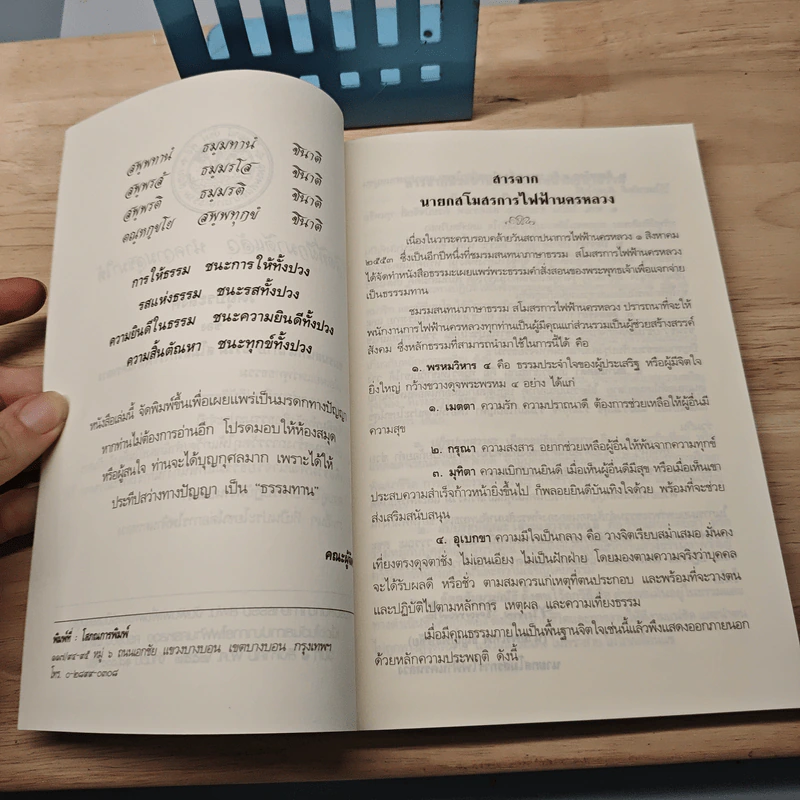 สพฺพทานํ ธมฺมทานํ ชินาติ
สพฺพรสํ ธมฺมรโส ชินาติ
สพฺพรติ ธมฺมรติ ชินาติ
ตณฺหกฺขโย สพฺพทุกฺขํ ชินาติ
การให้ธรรม ชนะการให้ทั้งปวง
รสแห่งธรรม ชนะรสทั้งปวง
ความยินดีในธรรม ชนะความยินดีทั้งปวง
ความสิ้นตัณหา ชนะทุกข์ทั้งปวง
หนังสือเล่มนี้ จัดพิมพ์ขึ้นเพื่อเผยแพร่เป็นมรดกทางปัญญา
หากท่านไม่ต้องการอ่านอีก โปรดมอบให้ห้องสมุด
หรือผู้สนใจ ท่านจะได้บุญกุศลมาก เพราะได้ให้
ประทีปสว่างทางปัญญา เป็น "ธรรมทาน"
พิมพ์ที่ : โสภณการพิมพ์
หมู่ ๖ ถนนเอกชัย แขวงบางบอน เขตบางบอน กรุงเทพฯ
โทร. ๐-๒๘๙๙-๐๓๐๘
สารจาก
นายกสโมสรการไฟฟ้านครหลวง
เนื่องในวาระครบรอบคล้ายวันสถาปนาการไฟฟ้านครหลวง ๑ สิงหาคม
๒๕๕๓ ซึ่งเป็นอีกปีหนึ่งที่ชมรมสนทนาภาษาธรรม สโมสรการไฟฟ้านครหลวง
ได้จัดทำหนังสือธรรมะเผยแพร่พระธรรมคำสั่งสอนของพระพุทธเจ้าเพื่อแจกจ่าย
เป็นธรรมทาน
ชมรมสนทนาภาษาธรรม สโมสรการไฟฟ้านครหลวง ปรารถนาที่จะให้
พนักงานการไฟฟ้านครหลวงทุกท่านเป็นผู้มีคุณแก่ส่วนรวมเป็นผู้ช่วยสร้างสรรค์
สังคม ซึ่งหลักธรรมที่สามารถนำมาใช้ในการนี้ได้ คือ
๑. พรหมวิหาร ๔ คือ ธรรมประจำใจของผู้ประเสริฐ หรือผู้มีจิตใจ
ยิ่งใหญ่ กว้างขวางดุจพระพรหม ๔ อย่าง ได้แก่
๑. เมตตา ความรัก ความปราถนาดี ต้องการช่วยเหลือให้ผู้อื่นมี
ความสุข
๒. กรุณา ความสงสาร อยากช่วยเหลือผู้อื่นให้พ้นจากความทุกข์
๓. มุทิตา ความเบิกบานยินดี เมื่อเห็นผู้อื่นดีมีสุข หรือเมื่อเห็นเขา
ประสบความสำเร็จก้าวหน้ายิ่งขึ้นไป ก็พลอยยินดีบันเทิงใจด้วย พร้อมที่จะช่วย
ส่งเสริมสนับสนุน
๔. อุเบกขา ความมีใจเป็นกลาง คือ วางจิตเรียบสม่ำเสมอ มั่นคง
เที่ยงตรงดุจตาชั่ง ไม่เอนเอียง ไม่เป็นฝักฝ่าย โดยมองตามความจริงว่าบุคคล
จะได้รับผลดี หรือชั่ว ตามสมควรแก่เหตุที่ตนประกอบ และพร้อมที่จะวางตน
และปฏิบัติไปตามหลักการ เหตุผล และความเที่ยงธรรม
เมื่อมีคุณธรรมภายในเป็นพื้นฐานจิตใจเช่นนี้แล้วพึงแสดงออกภายนอก
ด้วยหลักความประพฤติ ดังนี้